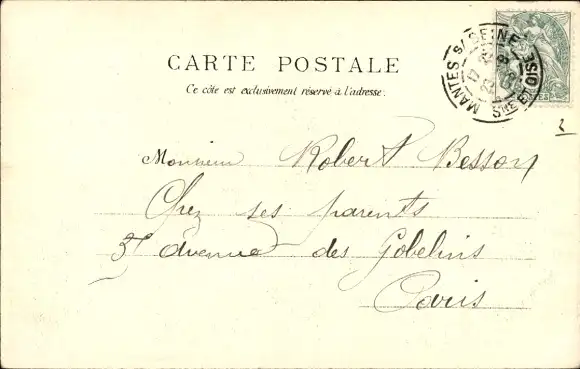 CARTE POSTALE
Ce côté est exclusivement réservé à l'adresse.
MANTES S/SEINE
Sne ET OISE
Monsieur Robert Besson
Chez ses parents
avenue des Gobelins
Paris